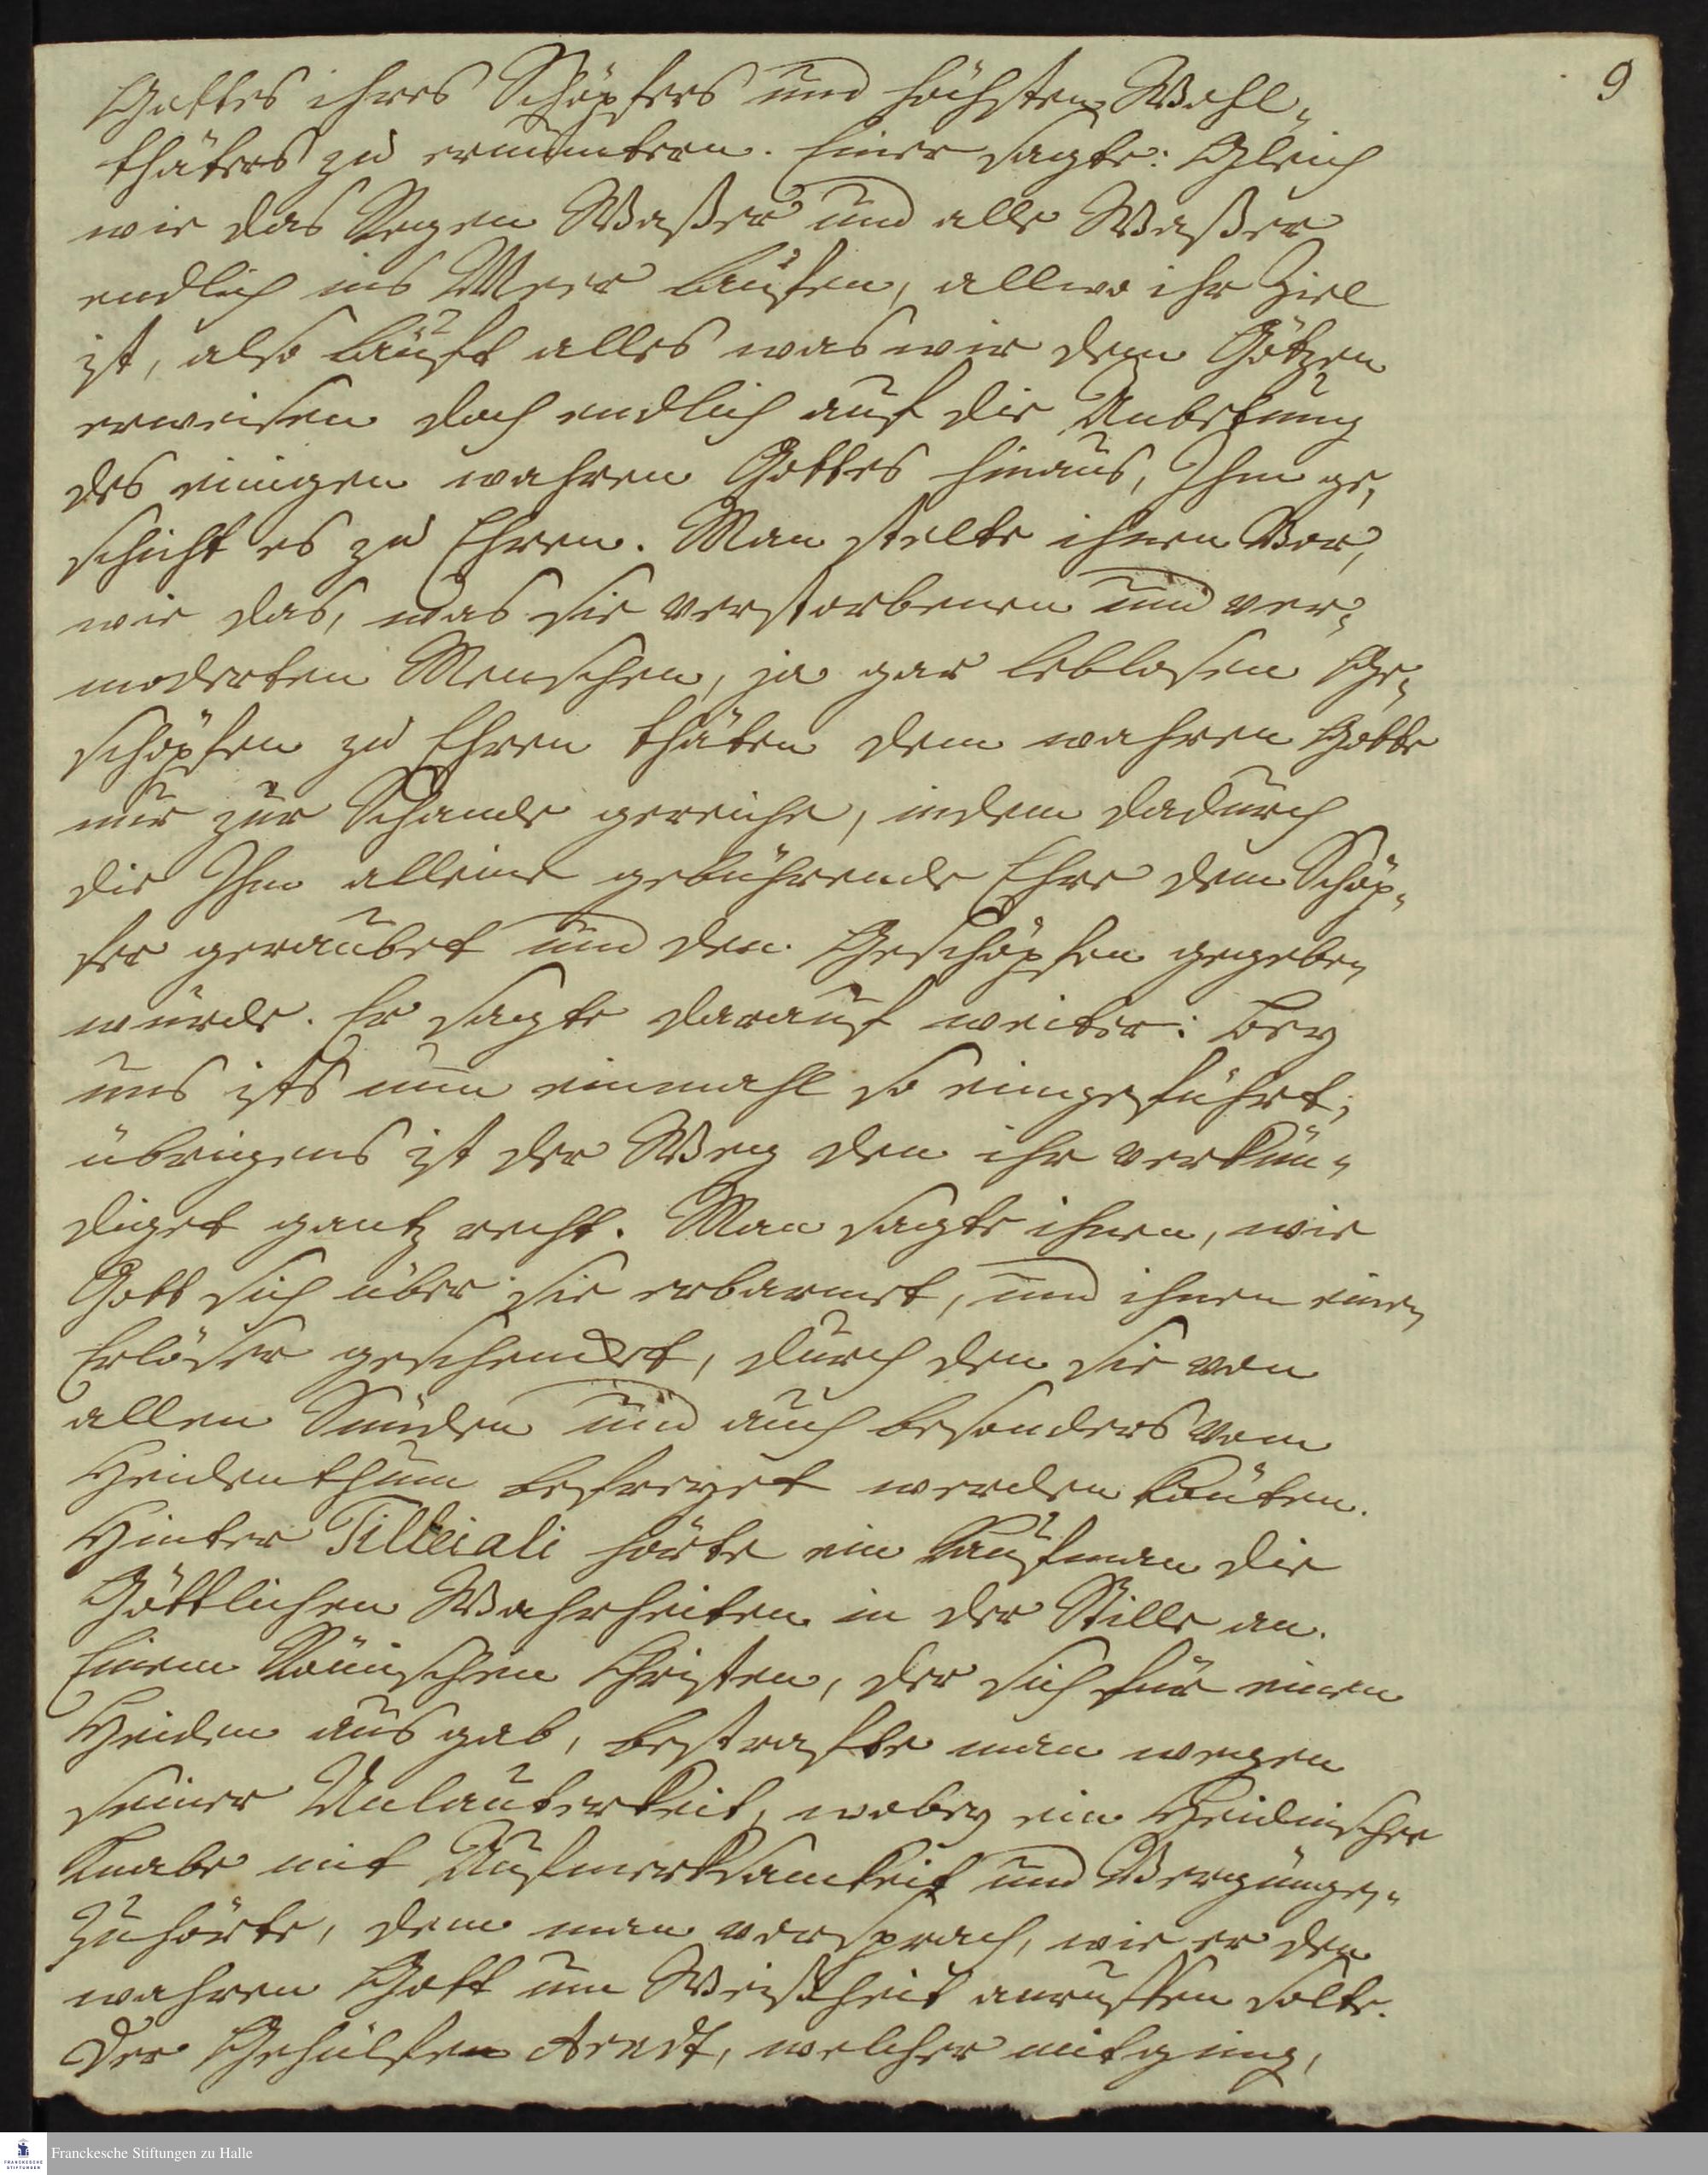 9
Gottes ihres Schöpfers und höchsten Wohl-
thäters zu ermuntern. Einer sagte: Gleich
wie das Regen Waßer und alle Waßer
endlich ins Meer lauffen, allwo ihr Ziel
ist, also läufft alles was wir dem Götzen
erweisen doch endlich auf die Anbetung
des einigen wahren Gottes hinaus, Ihm ge-
schicht es zu Ehren. Man stelte ihnen Vor,
wie das, was sie verstorbenen und ver-
moderten Menschen, ja gar leblosen Ge-
schöpfen zu Ehren thäten dem wahren Gotte
nur zur Schande gereiche, indem dadurch
die Ihm alleine gebührende Ehre dem Schöp-
fer geraubet und den Geschöpfen gegeben
würde. Er sagte darauf weiter: bey
uns ists nun einmahl so eingeführt;
übrigens ist der Weg den ihr verkün-
diget gantz recht. Man sagte ihnen, wie
Gott sich über sie erbarmet, und ihnen einen
Erlöser geschencket, durch den sie von
allen Sünden und auch besonders vom
Heidenthum befreyet werden könten.
Hinter Tilleiali hörte ein Kaufman die
Göttlichen Wahrheiten in der Stille an.
Einem Römischen Christen, der sich für einen
Heiden ausgab, bestrafte man wegen
seiner Unlauterkeit, wobey ein Heidnischer
Knabe mit Aufmerksamkeit und Vergnügen
zuhörte, dem man vorsprach, wie er den
wahren Gott um Weißheit anruffen solte.
Der Gehülfen Arndt, welcher mitging,
Franckesche Stiftungen zu Halle